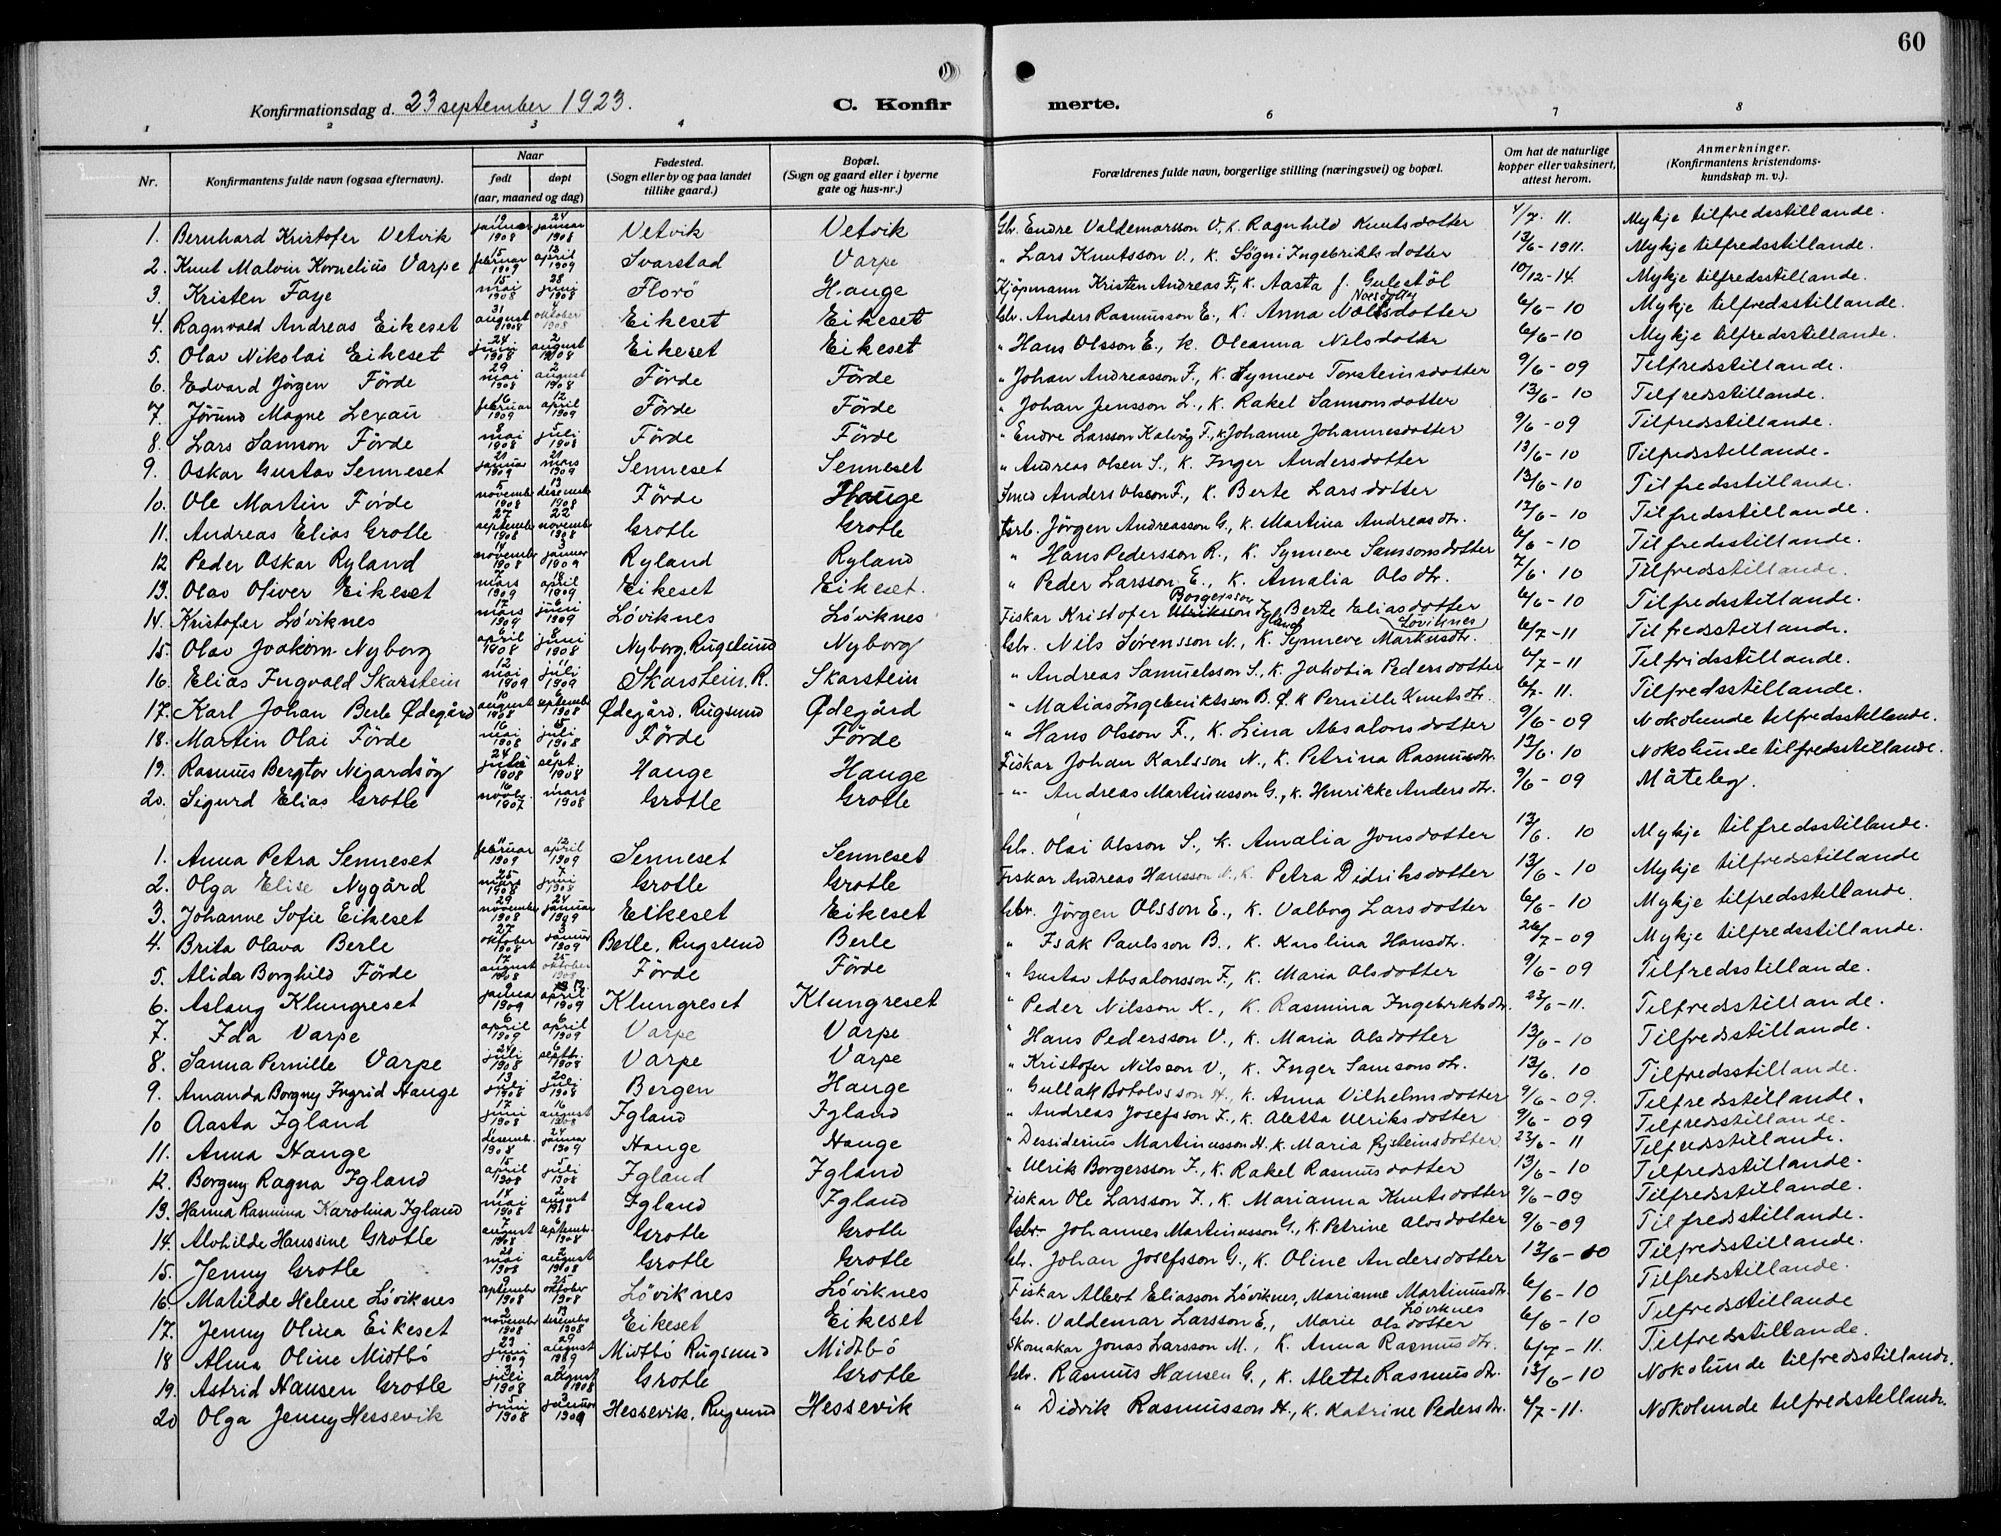 60
Konfirmationsdag d. 23 september 1923. C. Konfir merte.
1 2 3 4 6 7 8
Nr. Konfirmantens fulde navn (ogsaa efternavn). Naar født døpt (aar, maaned og dag) Fødested. (Sogn eller by og paa landet tillike gaard.) Bopæl. (Sogn og gaard eller i byerne gate og hus-nr.) Forældrenes fulde navn, borgerlige stilling (næringsvei) og bopæl. Om hat de naturlige kopper eller vaksinert, attest herom. Anmerkninger. (Konfirmantens kristendomskundskap m. v.).
1. Bernhard Kristofer Vetvik 19 januar 1908 24 januar 1908 Vetvik Vetvik Gbr. Endre Valdemarsson V., k. Ragnhild Knutsdotter 4/7. 11. Mykje tilfredsstillande.
2. Knut Malvin Kornelius Varpe 15 februar 1909 13 april 1909 Svarstad Varpe " Lars Knutsson V., k. Søgni Ingebrikts dotter 13/6-1911. Mykje tilfredsstillande.
3. Kristen Faye 15 mai 1908 28 juni 1908 Florö Hauge Kjöpmann Kristen Andreas F., k. Aasta f. Gulestöl 10/12-14. Mykje tilfredsstillande.
4. Ragnvald Andreas Eikeset 31 august 1908 4 oktober 1908 Eikeset Eikeset Gbr. Anders Rasmusson E., k. Anna dotter 6/6-10 Mykje tilfredsstillande.
5. Olav Nikolai Eikeset 24 juni 1908 2 august 1908 Eikeset Eikeset " Hans Olsson E., k. Oleanna Nilsdotter 6/6-10 Mykje tilfredsstillande.
6. Edvard Jörgen Förde 29 mai 1908 2 august 1908 Förde Förde " Johan Andreasson F., k. Synneve Torsteinsdotter 9/6-09 Tilfredsstillande.
7. Jörund Magne Lexau 16 februar 1909 12 april 1909 Förde Förde " Johan Jensson L., k. Rakel Samsonsdotter 13/6-10 Tilfredsstillande.
8. Lars Samson Förde 8 mai 1908 5 juli 1908 Förde Förde " Endre Larsson Kalvåg F., k. Johanne Johannesdotter 9/6-09 Tilfredsstillande.
9. Oskar Gustav Senneset januar 1909 mars 1909 Senneset Senneset " Andreas Olsen S., k. Inger Andersdotter 13/6-10 Tilfredsstillande.
10. Ole Martin Förde 5 november 1908 13 desember 1908 Förde Hauge Smed Anders Olsson F., k. Berte Larsdotter 13/6-10 Tilfredsstillande.
11. Andreas Elias Grotle 27 september 1908 22 november 1908 Grotle Grotle Gbr. Jörgen Andreasson G., k. Martina Andreasdtr. 13/6-10 Tilfredsstillande.
12 Peder Oskar Ryland 14 november 1908 3 januar 1909 Ryland Ryland " Hans Pedersson R., k. Synneve Samsonsdotter 6/6-10 Tilfredsstillande.
13. Olav Oliver Eikeset 7 mars 1909 18 april 1909 Eikeset Eikeset. " Peder Larsson E., k. Amalia Olsdtr. 7/6. 10 Tilfredsstillande.
14. Kristofer Löviknes 17 mars 1909 6 juni 1909 Löviknes Löviknes Fiskar Kristofer Borgersson Igland, Berte Eliasdotter Löviknes 6/6-10 Tilfredsstillande.
15. Olav Joakim Nyborg 6 april 1908 8 juni 1908 Nyborg, Rugslund Nyborg Gbr. Nils Sörensson N., k. Synneve Markusdtr. 6/7-11 Tilfredsstillande.
16. Elias Ingvald Skarstein 12 mai 1909 11 juli 1909 Skarstein. R. Skarstein " Andreas Samuelsson S., k. Jakobia Pedersdotter 6/7-11 Tilfredsstillande.
17. Karl Johan Berle Ødegård 10 august 1908 6 september 1908 Ødegård. Rugsund Ødegård " Matias Ingebriktsson B. Ø. k Pernille Knutsdtr. 6/7-11. Tilfredsstillande.
18. Martin Olai Förde 16 mai 1908 5 juli 1908 Förde Förde " Hans Olsson F., k. Lina Absalonsdotter 9/6-09 Nokolunde tilfredsstillande.
19. Rasmus Bergtor Nigardsög 24 juli 1908 6 sept. 1908 Hauge Hauge Fiskar Johan Karlsson N., k. Petrina Rasmusdtr. 13/6. 10 Nokolunde tilfredsstillande.
20. Sigurd Elias Grotle 16 novbr. 1907 mars 1908 Grotle Grotle -"- Andreas Martinusson G., k. Henrikke Andersdtr. 9/6-09 Måteleg.
1. Anna Petra Senneset 11 februar 1909 12 april 1909 Senneset Senneset Gbr. Olai Olsson S., k. Amalia Jonsdotter 13/6. 10 Mykje tilfredsstillande.
2. Olga Elise Nygård 25 mars 1908 7 juni 1908 Grotle Grotle Fiskar Andreas Hansson N., k. Petra Didriksdotter 13/6-10 Mykje tilfredsstillande
3. Johanne Sofie Eikeset 29 november 1908 24 januar 1909 Eikeset Eikeset Gbr. Jörgen Olsson E., k. Valborg Larsdotter 6/6-10 Mykje tilfredsstillande.
4. Brita Olava Berle 27 oktober 1908 3 januar 1909 Berle, Rugslund Berle " Isak Paulsson B., k. Karolina Hansdtr. 26/7-09 Mykje tilfredsstillande.
5. Alida Borghild Förde 17 august 1908 25 oktober 1908 Förde Förde " Gustav Absalonsson F., k. Maria Olsdotter 9/6-09 Tilfredsstillande.
6. Aslaug Klungreset 9 januar 1909 april 1909 Klungreset Klungreset " Peder Nilsson K., k. Rasmina Ingebriktsdtr. 23/6-11. Tilfredsstillande.
7. Ida Varpe 6 april 1909 6 april 1909 Varpe Varpe " Hans Pedersson V., k. Maria Olsdotter 13/6-10 Tilfredsstillande.
8. Sanna Pernille Varpe 24 juli 1908 6 septbr. 1908 Varpe Varpe " Kristofer Nilsson V., k. Inger Samsonsdtr. 13/6. 10 Tilfredsstillande.
9. Amanda Borgny Ingrid Hauge 13 juli 1908 20 juli 1908 Bergen Hauge " Gullak Botolvsson H., k. Anna Vilhelmsdotter 9/6-09. Tilfredsstillande.
10 Aasta Igland 17 juni 1908 16 august 1908 Igland Igland " Andreas Josefsson I., k. Aletta Ulriksdotter 9/6-09 Tilfredsstillande.
11. Anna Hauge desemb. 1908 24 januar 1909 Hauge Hauge " Dessiderius Martinusson H. k. Maria Eysteinsdotter 23/6-11 Tilfredsstillande.
12. Borgny Ragna Igland 15 april 1908 5 juli 1908 Igland Igland " Ulrik Borgersson I., k. Rakel Rasmusdotter 13/6-10 Tilfredsstillande.
13. Hanna Rasmina Karolina Igland 18 mai 1908 2 august 1908 Igland Igland Fiskar Ole Larsson I., k. Marianna Knutsdotter 9/6-09 Tilfredsstillande.
14. Alvhilde Hanssine Grotle 7 august 1908 6 septembr. 1908 Grotle Grotle Gbr. Johannes Martinusson G., k. Petrine Olvsdotter 9/6-09 Tilfredsstillande.
15. Jenny Grotle 21 mai 1908 2 august 1908 Grotle Grotle Gbr. Johan Josefsson G., k. Oline Andersdotter 13/6-10 Tilfredsstillande.
16. Matilde Helene Löviknes 9 septembr 1908 25 oktober 1908 Löviknes Löviknes Fiskar Albert Eliasson Löviknes, Marianne Martinusdtr. Löviknes 6/6-10 Tilfredsstillande.
17. Jenny Olina Eikeset 2 novembr 1908 13 desembr 1908 Eikeset Eikeset Gbr. Valdemar Larsson E., Marie Olsdotter 6/6-10 Tilfredsstillande
18 Alma Oline Midtbö 23 juni 1909 29 august 1909 Midtbö Rugsund Midtbö Skomakar Jonas Larsson M., k. Anna Rasmusdtr. 6/7-11. Tilfredsstillande.
19. Astrid Hansen Grotle 3 juli 1908 2 august 1908 Grotle Grotle Gbr. Rasmus Hansen G., k. Alette Rasmusdtr. 13/6-10 Nokolunde tilfredsstillande.
20 Olga Jenny Hessevik 5 juni 1908 3 januar 1909 Hessevik, Rugsund Hessevik " Didrik Rasmusson H., k. Katrine Pedersdtr. 6/7-11. Nokolunde tilfredsstillande.